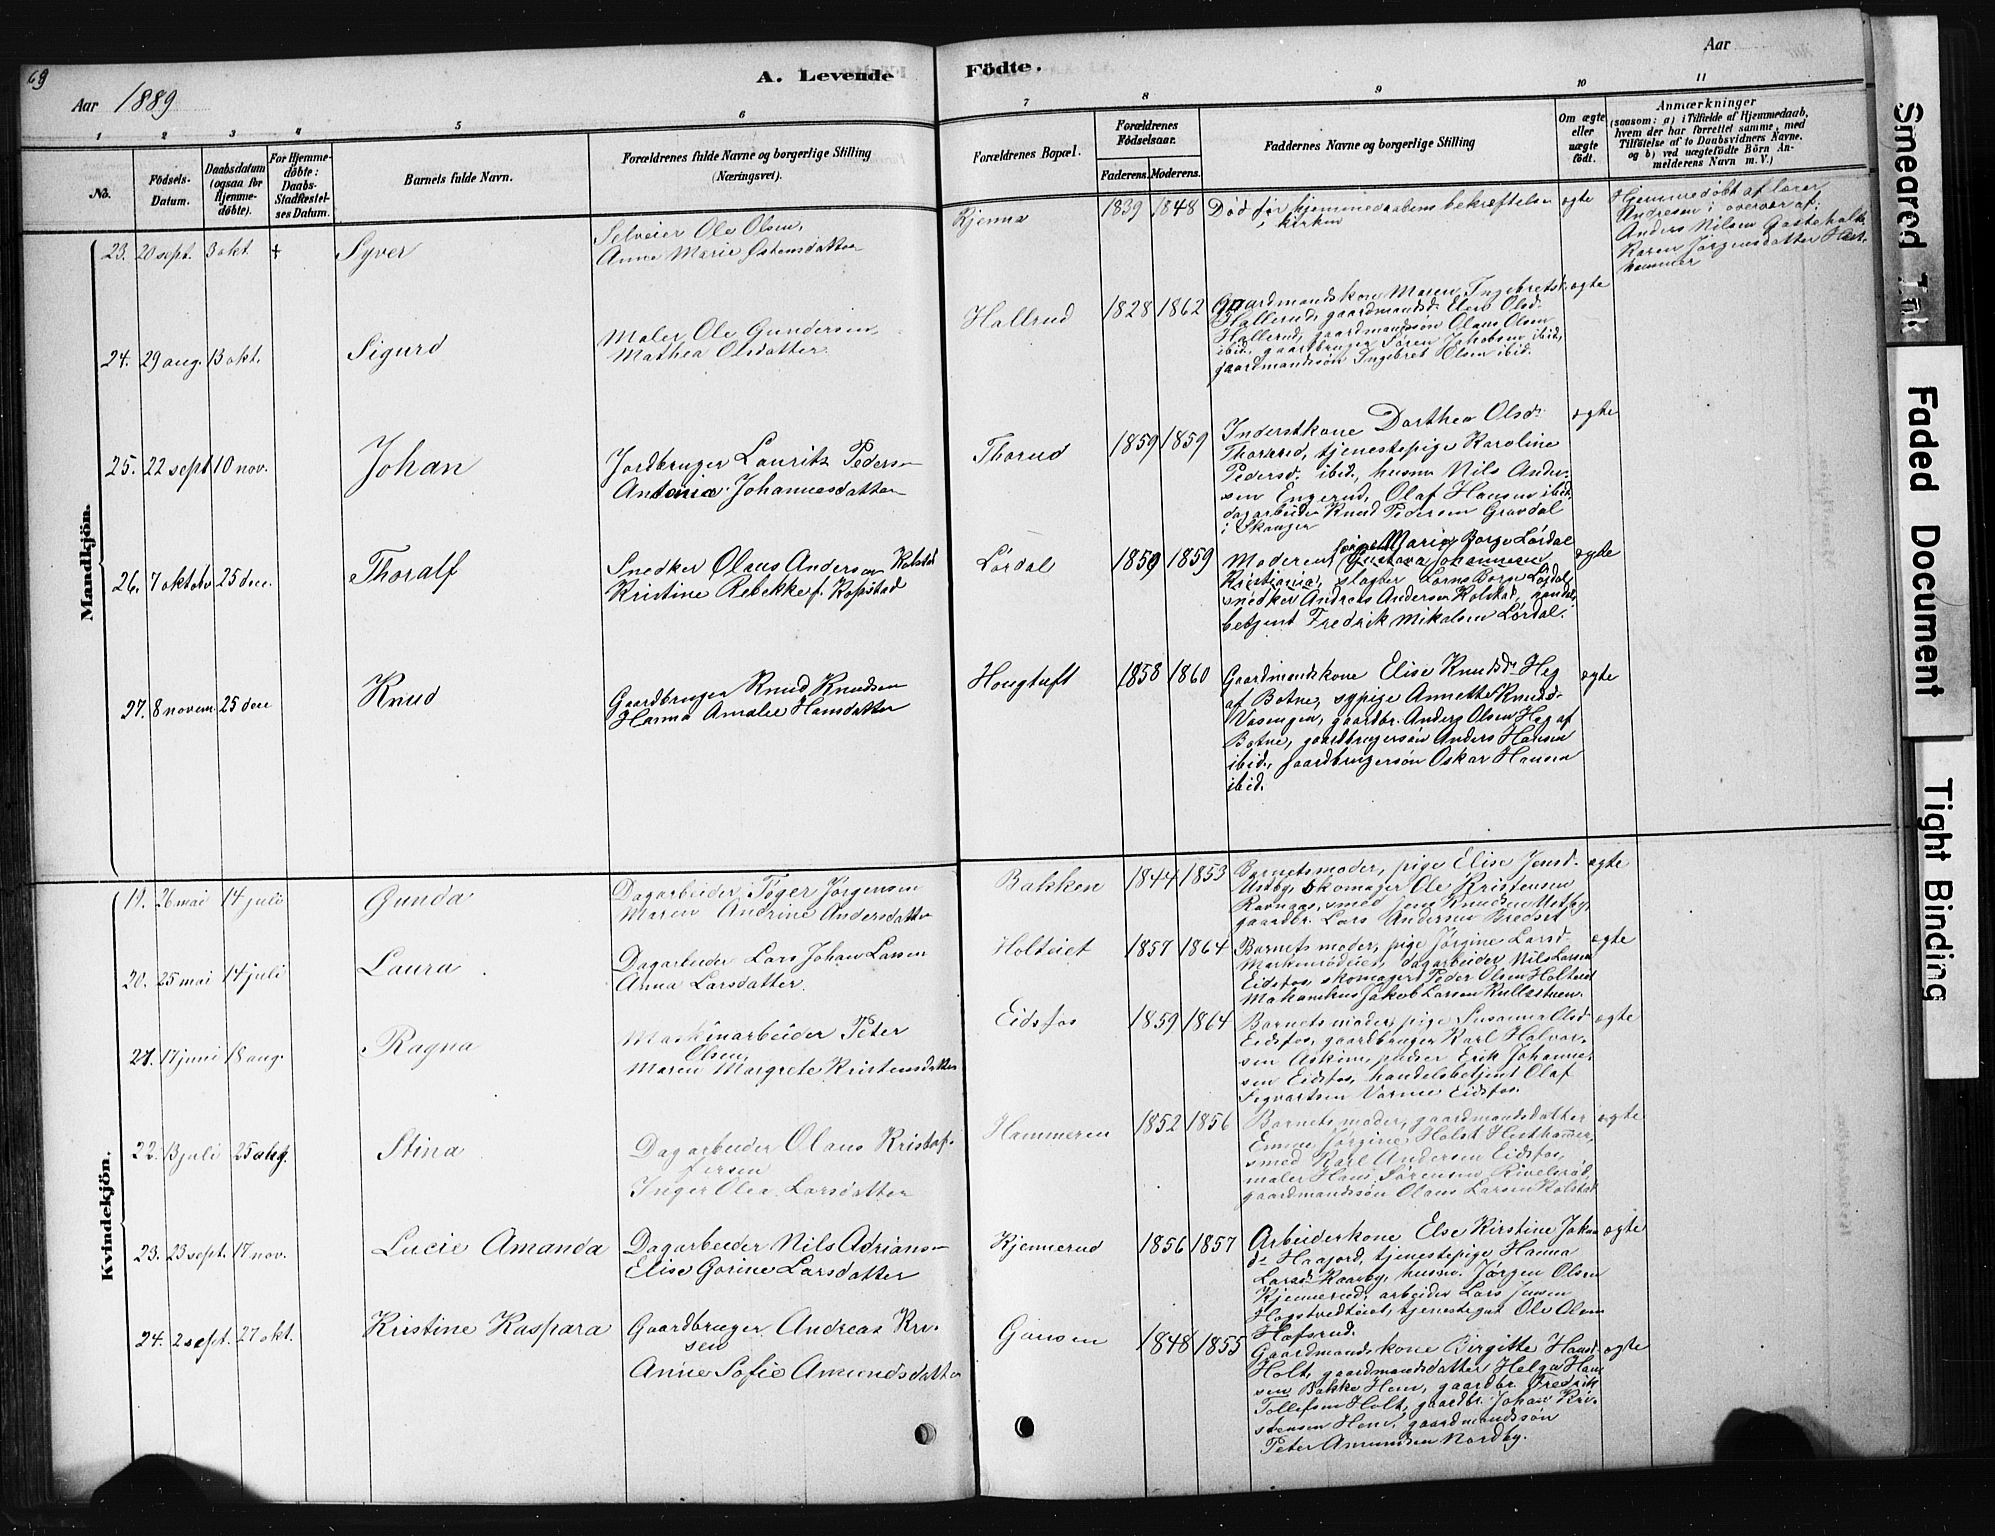 69
A. Levende
Födte.
Aar 1889
Aar
1 2 3 4 5 6 7 8 9 10 11
No.
Födsels-
Datum.
Daabsdatum
(ogsaa for
Hjemme-
døbte).
For Hjemme-
döbte:
Daabs-
Stadfæstel-
ses Datum.
Barnets fulde Navn.
Forældrenes fulde Navne og borgerlige Stilling
(Næringsvei).
Forældrenes Bopæl.
Forældrenes
Födselsaar.
Faderens.
Moderens.
Faddernes Navne og borgerlige Stilling
Om ægte
eller
uægte
født.
Anmærkninger
(saasom: a) i Tilfælde af Hjemmedaab,
hvem der har forrettet samme, med
Tilføielse af to Daabsvidners Navne.
og b) ved uægtefödte Börn An-
melderens Navn m. V.)
Mandkjön.
23. 20 sept. 3 okt. + Syver
Selveier Ole Olsen,
Anne Marie Østensdatter
Kjenna 1839 1848
Død før hjemmedaabens bekræftelse
i kirken
ægte
Hjemmedøbt af lærer
Andresen i overvær af
Anders Nilsen
Karen Jørgensdatter Hest-
hammer
24. 29 aug. 13 okt. Sigurd
Maler Ole Gundersen,
Mathea Olsdatter
Hallrud 1828 1862
Gaardmandskone Maren Ingebretsd.
Hallerud, gaardmandsd. Olsd.
Hallerud, gaardmandssøn Olaus Olsen
ibid, gaardbruger Søren Jakobsen ibid,
gaardmandssøn Ingebret Olsen ibid.
ægte
25. 22 sept 10 nov. Johan
Jordbruger Laurits Peders-
Antonia Johannesdatter
Thorud 1859 1859
Inderstkone Dorthea Olsd.
Thorrud, tjenestepige Karoline
Pedersd. ibid., husm Nils Ander-
sen Engerud, Olaf Hansen ibid.
dagarbeider Knud Pedersen Gravdal
i Skauger
ægte
26. 7 oktobr 25 dec. Thoralf
Snedker Olaus Andersen Kolstad
Kristine Rebekke f. Kopstad
Lördal 1859 1859
Maria Borge Lørdal
Moderen, Gustava Johannesen
Kristiania, slagter Borge Lørdal,
snedker Andreas Andersen Kolstad, handels-
betjent Fredrik Mikalsen Lørdal.
ægte
27. 8 novem. 25 dec Knud
Gaardbruger Knud Knudsen
Hanna Amalie Hansdatter
Hougtuft 1858 1860
Gaardmandskone Elise Knudsd. Heg
af Botne, sypige Annette Knudsd.
Vasengen, gaardbr. Anders Olsen Heg af
Botne, gaardbrugersøn Anders Hansen
ibid., gaardbrugersøn Oskar Hansen
ibid.
ægte
Kvindekjön.
19. 26 mai 14 juli Gunda
Dagarbeider Tøger Jørgensen
Maren Andrine Andersdatter
Bakken 1844 1853
Barnets moder, pige Elise Jensd.
Ustby, skomager Ole Kristensen
Ravnaas, smed Knudsen Ustby,
gaardbr. Lars Andersen Bredset
ægte
20. 25 mai 14 juli Laura
Dagarbeider Lars Johan Larsen
Anna Larsdatter
Holteiet 1857 1864
Barnets moder, pige Jørgine Larsd.
dagarbeider Nils Larsen
Eidsfos, skomager Peder Olsen Holteiet
Jakob Larsen Kullestuen.
ægte
21. 17 juni 18 aug. Ragna
Maskinarbeider Peter
Olsen,
Maren Margrete Kristensdatter
Eidsfos 1859 1864
Barnets moder, pige Susanna Olsd.
Eidsfos, gaardbruger Karl Halvor-
sen Askim, pudser Erik Johannes-
sen Eidsfos, handelsbetjent Olaf
Segvartsen Varme Eidsfos.
ægte
22. 13 juli 25 aug. Stina
Dagarbeider Olaus Kristof-
fersen
Inger Olea Larsdatter
Hammeren 1852 1856
Barnets moder, gaardmandsdatter
Emma Jørgine Holst Hesthammer,
smed Karl Andersen Eidsfos,
maler Hans Sørensen Kivelsrød,
gaardmandssøn Olaus Larsen Kolstad
ægte
23. 23 sept. 17 nov. Lucie Amanda
Dagarbeider Nils Adrians-
Elise Gorine Larsdatter
Kjennerud 1856 1857
Arbeiderkone Else Kirstine Jakob
d. Haajord, tjenestepige Hanna
Larsd. Kaarby, husm. Jørgen Olsen
Kjennerud, arbeider Lars Jensen
Hogstvedteiet, tjenestegut Ole Olsen
Hafsrud.
ægte
24. 2 sept. 27 okt. Kristine Kaspara
Gaardbruger Andreas Kri-
sen
Anne Sofie Amundsdatter
Gausen 1848 1855
Gaardmandskone Birgitte Hansd.
Holt, gaardmandsdatter Helga Han-
sen Bakke Hem, gaardbr. Fredrik
Tollefsen Holt, gaardbr. Johan Kri-
stensen Hem, gaardmandssøn
Peter Amundsen Nordby.
ægte
Smeared Ink
Faded Document
Tight Binding